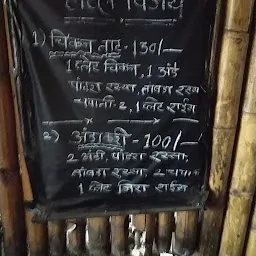 १) चिकन ताट - 130/-
1 प्लेट चिकन, 1 अंडे
पांढरा रस्सा, तांबडा रस्सा
चपाती 2, 1 प्लेट राईस
२) अंडाकरी - 100/-
2 अंडी, पांढरा रस्सा,
तांबडा रस्सा, 2 चपाती
1 प्लेट जिरा राईस